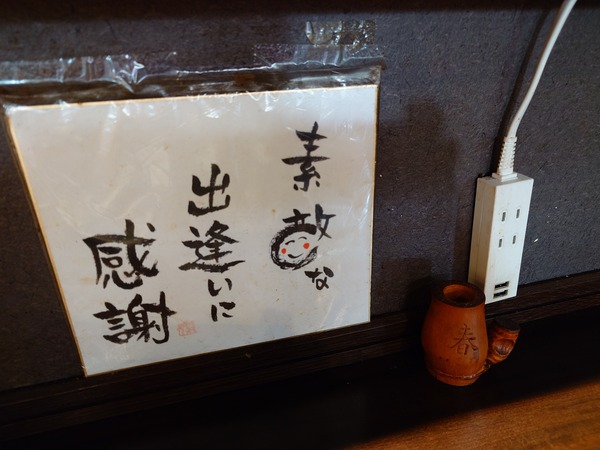 素敵な
出逢いに
感謝
春